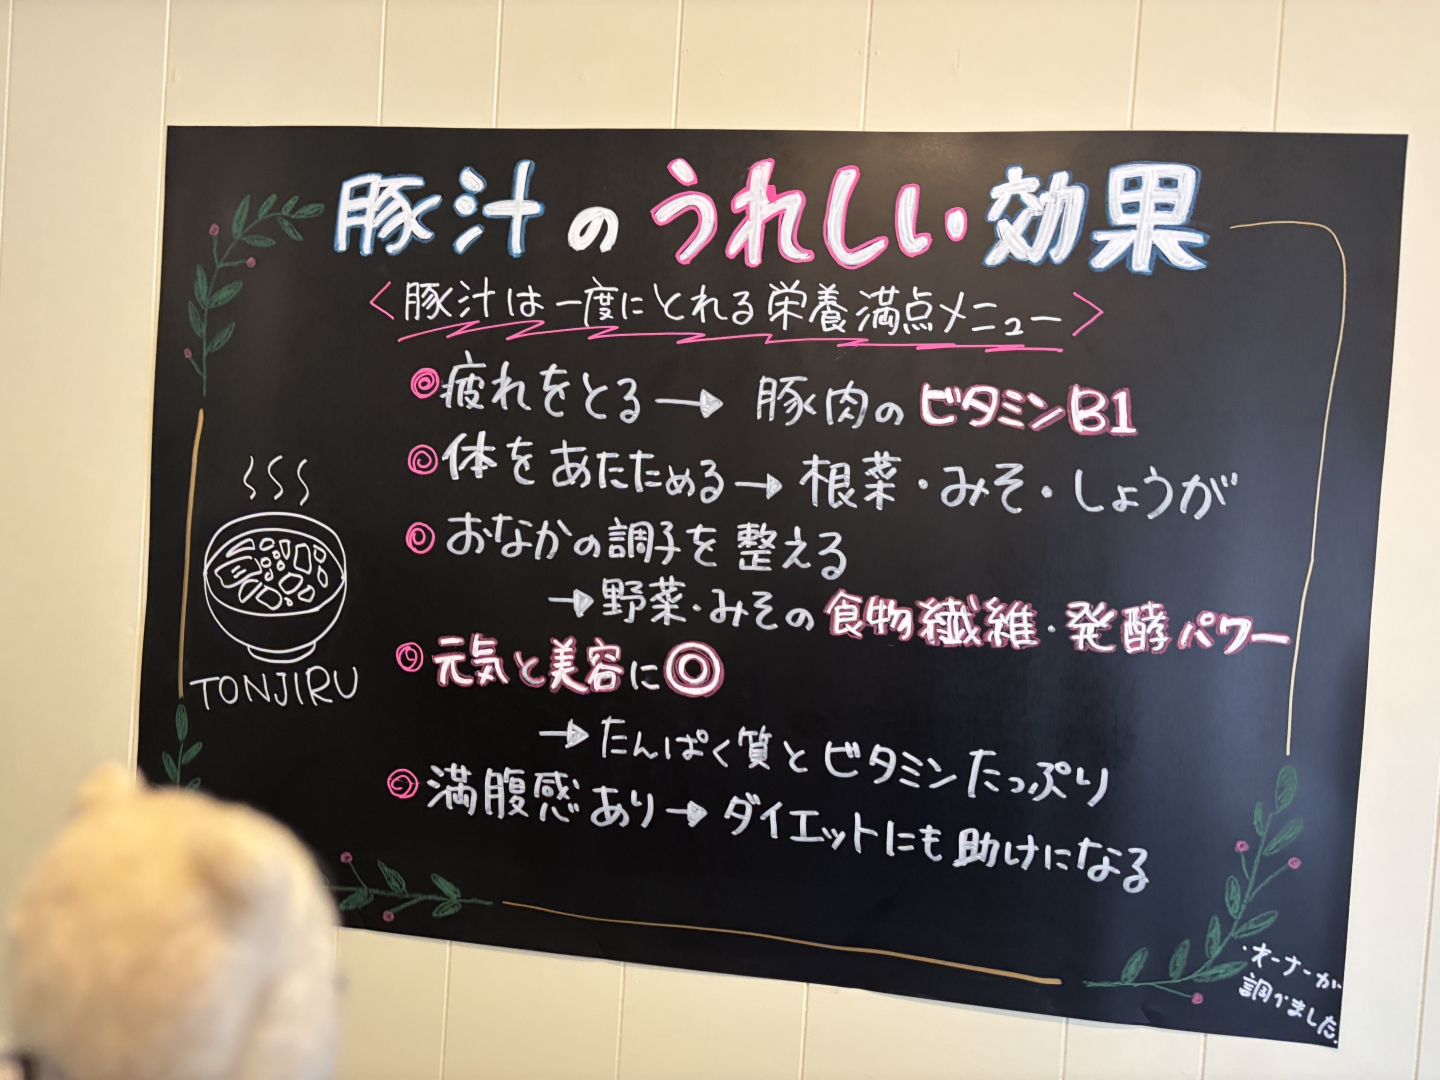 豚汁のうれしい効果
<豚汁は一度にとれる栄養満点メニュー>
疲れをとる→ 豚肉のビタミンB1
体をあたためる→根菜・みそ・しょうが
おなかの調子を整える
→野菜・みその食物繊維・発酵パワー
元気と美容に◎
→たんぱく質とビタミンたっぷり
満腹感あり→ダイエットにも助けになる
TONJIRU
・オーナーが
調べました。